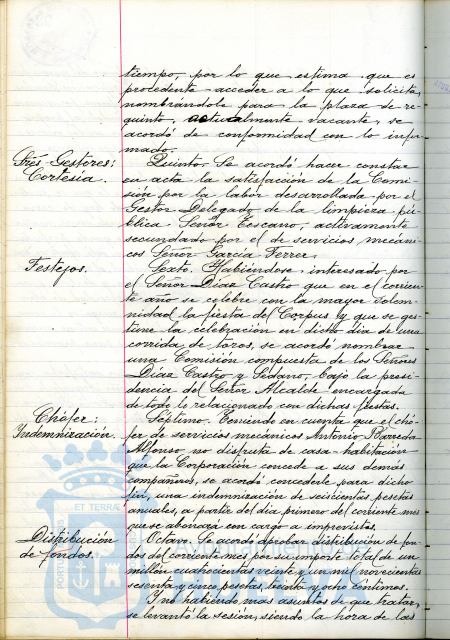 tiempo, por lo que estima que es
procedente acceder a lo que solicita,
nombrándole para la plaza de re-
quinto, actualmente vacante, se
acordó de conformidad con lo infor-
mado.
Sres. Gestores:
Cortesía.
Quinto. Se acordó hacer constar
en acta la satisfacción de la Comi-
sión por la labor desarrollada por el
Gestor Delegado de la limpieza pú-
blica Señor Cescano, activamente
secundado por el de servicios mecáni-
cos Señor García Ferrer.
Festejos.
Sexto. Habiéndose interesado por
el Señor Díaz Castro que en el corrien-
te año se celebre con la mayor solem-
nidad la fiesta del Corpus y que se ges-
tione la celebración en dicho día de una
corrida de toros, se acordó nombrar
una Comisión compuesta de los Señores
Díaz Castro y Sedano, bajo la presi-
dencia del Señor Alcalde encargada
de todo lo relacionado con dichas fiestas.
Chófer:
Indemnización.
Séptimo. Teniendo en cuenta que el chó-
fer de servicios mecánicos Antonio Barreda
Alfonso no disfruta de casa-habitación
que la Corporación concede a sus demás
compañeros, se acordó concederle para dicho
fin, una indemnización de seiscientas pesetas
anuales, a partir del día primero del corriente mes
que se abonará con cargo a imprevistos.
Distribución
de fondos.
Octavo. Se acordó aprobar distribución de fon-
dos del corriente mes por su importe total de un
millón cuatrocientas veinte y un mil novecientas
sesenta y cinco pesetas, treinta y ocho céntimos.
Y no habiendo más asuntos de que tratar,
se levantó la sesión, siendo la hora de las
ET TERRA